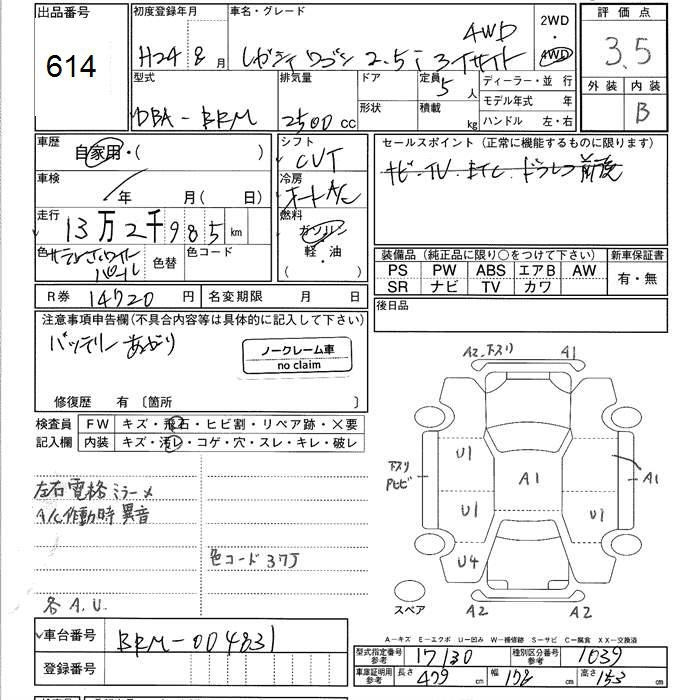 出品番号
614
初度登録年月
H24 8月
車名・グレード
レガシィ ワゴン 2.5i アイサイト 4WD
2WD
・
4WD
評価点
3.5
外装 内装
B
型式
DBA-BRM
排気量
2500 CC
ドア
形状
定員 5人
積載 kg
ディーラー・並行
モデル年式 年
ハンドル 左・右
車歴
自家用・( )
車検
年 月( 日)
走行
13万2千985 km
色 サテンホワイト
パール
色替
色コード
シフト
CVT
冷房
オートA/C
燃料
ガソリン
軽・油
( )
セールスポイント (正常に機能するものに限ります)
ナビ・TV ETC ドラレコ前後
装備品 (純正品に限り○をつけて下さい)
PS PW ABS エアB AW
SR ナビ TV カワ
新車保証書
有・無
R券 14720 円
名変期限 月 日
後日品
注意事項申告欄(不具合内容等は具体的に記入して下さい)
バッテリーあがり
ノークレーム車
no claim
修復歴 有〔箇所 〕
検査員
記入欄
FW キズ・飛石・ヒビ割・リペア跡・×要
内装 キズ・汚レ・コゲ・穴・スレ・キレ・破レ
左右電格ミラーメ
A/C作動時異音
色コード37J
各A.U.
A2 下スリ A1
U1
下スリ
PヒビA1
A1
U1 U1
U4
A2 A2
スペア
A-キズ E-エクボ U-凹み W-補修跡 S-サビ C-腐食 XX-交換済
車台番号 BRM-004831
登録番号
型式指定番号
参考
17130
種別区分番号
参考
1039
車庫証明用
参考
長さ 479 cm 幅 178 cm 高さ 153 cm